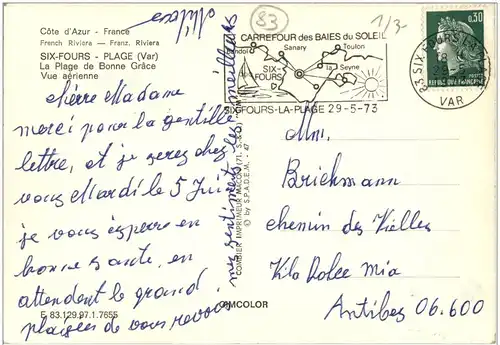 Côte d'Azur - France
French Riviera — Franz. Riviera
SIX-FOURS - PLAGE (Var)
La Plage de Bonne Grâce
Vue aérienne
chère Madame
merci pour la gentille
lettre, et je serez chez
vous Mardi le 5 Juin
je vous espère en
bonne sante, en
attendent le grand
plaisir de vous revoir
mes sentiments les meilleurs
E 83.129.97.1.7655
COMBIER IMPRIMEUR MACON
© by S.P.A.D.E.M. - 47
CIMCOLOR
83
1/3-
CARREFOUR des BAIES du SOLEIL
Sanary
Toulon
SIX-
FOURS
la Seyne
SIX-FOURS-LA-PLAGE 29-5-73
0,30
VAR
Mm.
Brichmann
chemin des Vielles
Vila Dolce Mia
Antibes 06.600